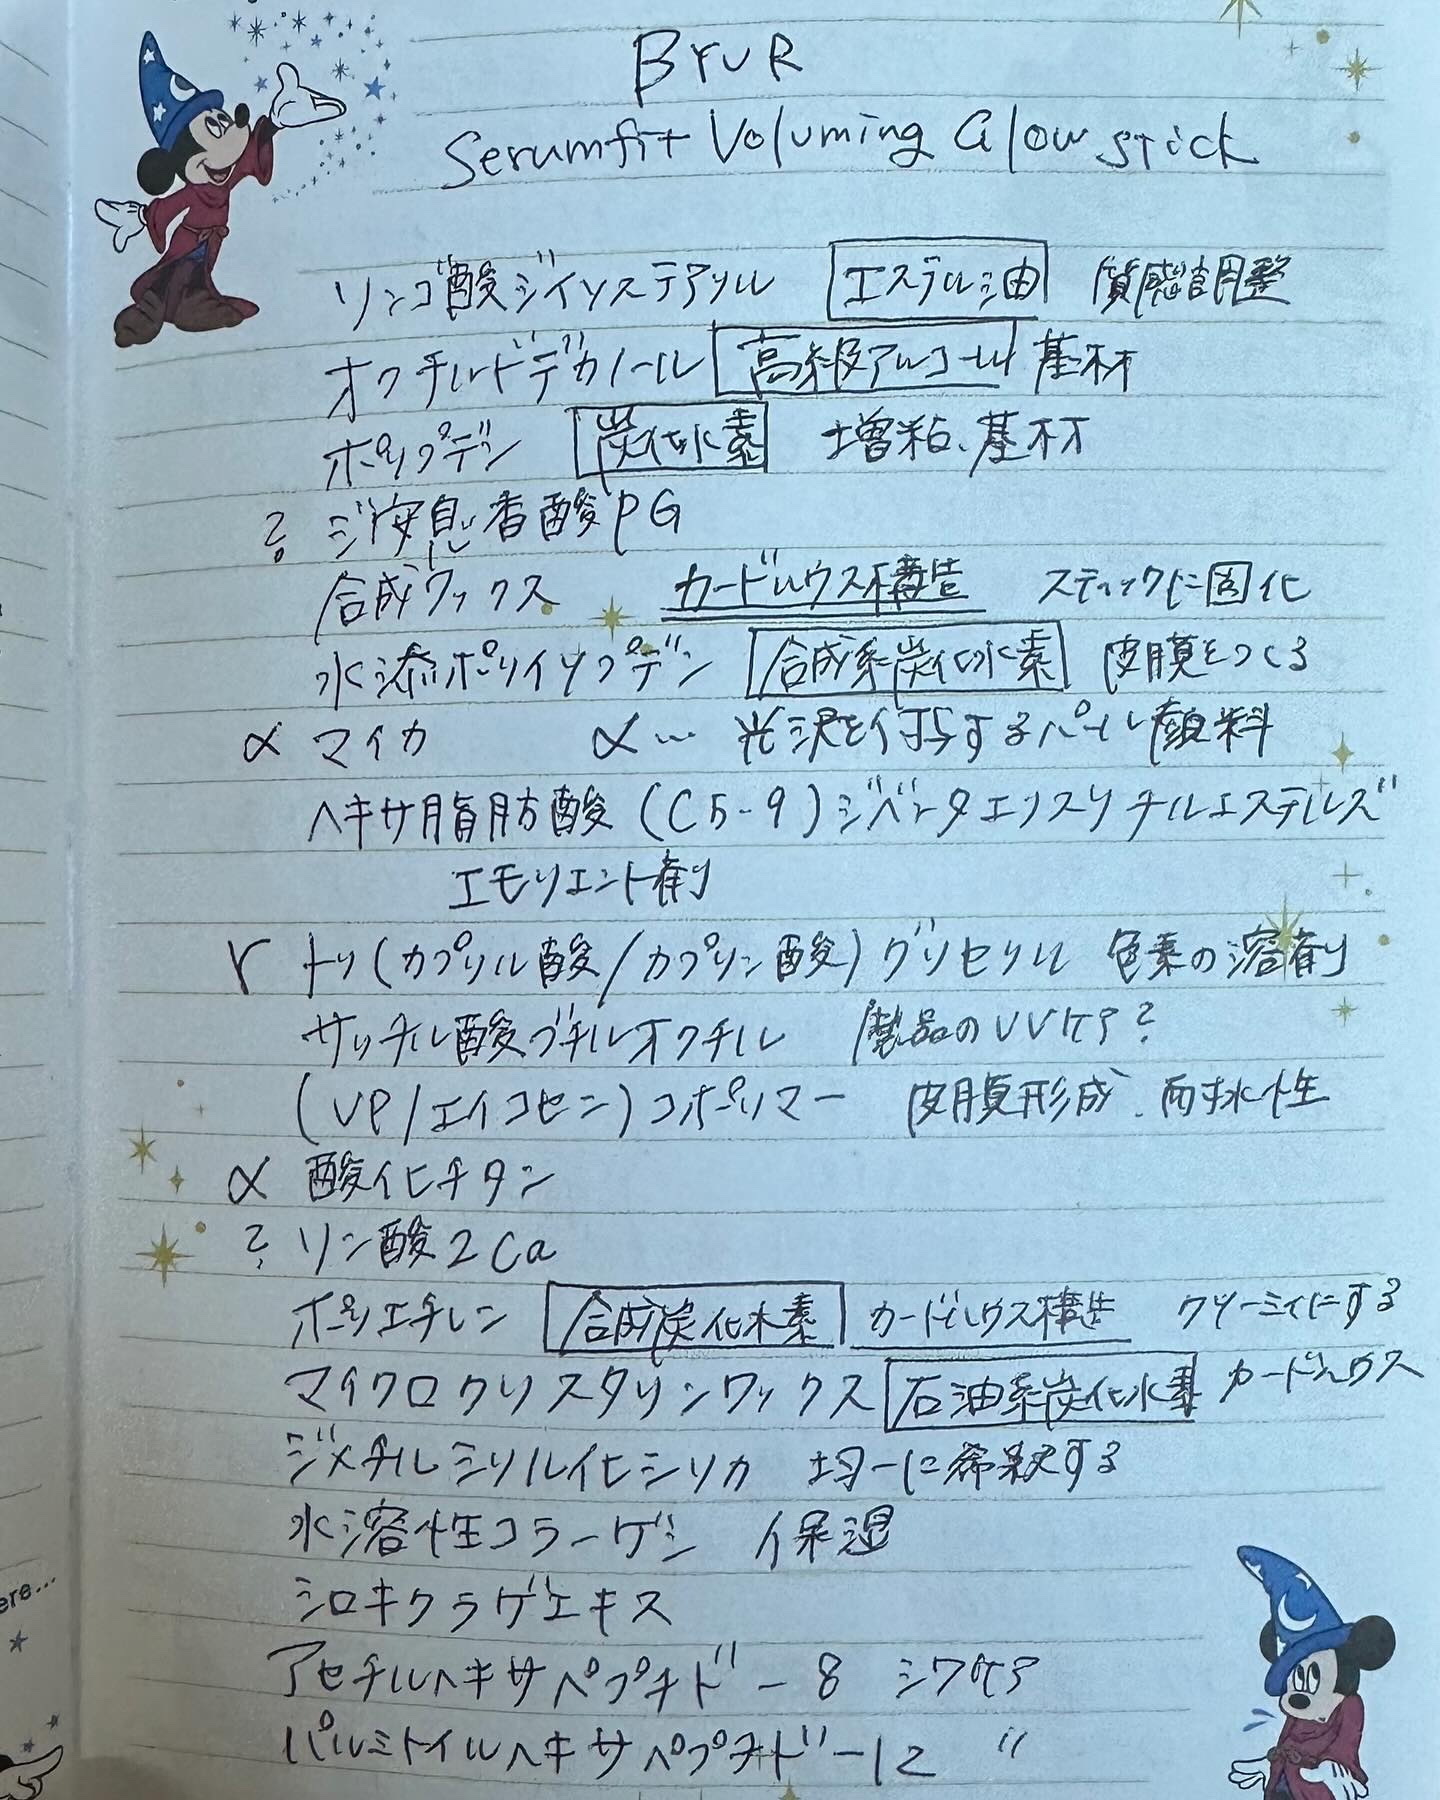 BYUR
Serumfit Voluming Glow stick
リンゴ酸ジイソステアリル エステル油 質感調整
オクチルドデカノール 高級アルコール 基材
ポリブデン 炭化水素 増粘、基材
? ジ安息香酸PG
合成ワックス カードハウス構造 スティックに固化
水添ポリイソブデン 合成系炭化水素 皮膜をつくる
α マイカ α… 光沢を付与するパール顔料
ヘキサ脂肪酸(C5-9)ジペンタエリスリチルエステルズ
エモリエント剤
r トリ(カプリル酸/カプリン酸)グリセリル 色素の溶剤
サリチル酸ブチルオクチル 製品のUVケア?
(VP/エイコセン)コポリマー 皮膜形成、耐水性
α 酸化チタン
? リン酸2Ca
ポリエチレン 合成炭化水素 カードハウス構造 クリーミィにする
マイクロクリスタリンワックス 石油系炭化水素 カードハウス
ジメチルシリル化シリカ 均一に希釈する
水溶性コラーゲン 保湿
シロキクラゲエキス
アセチルヘキサペプチド-8 シワケア
パルミトイルヘキサペプチド-12 〃
ere...